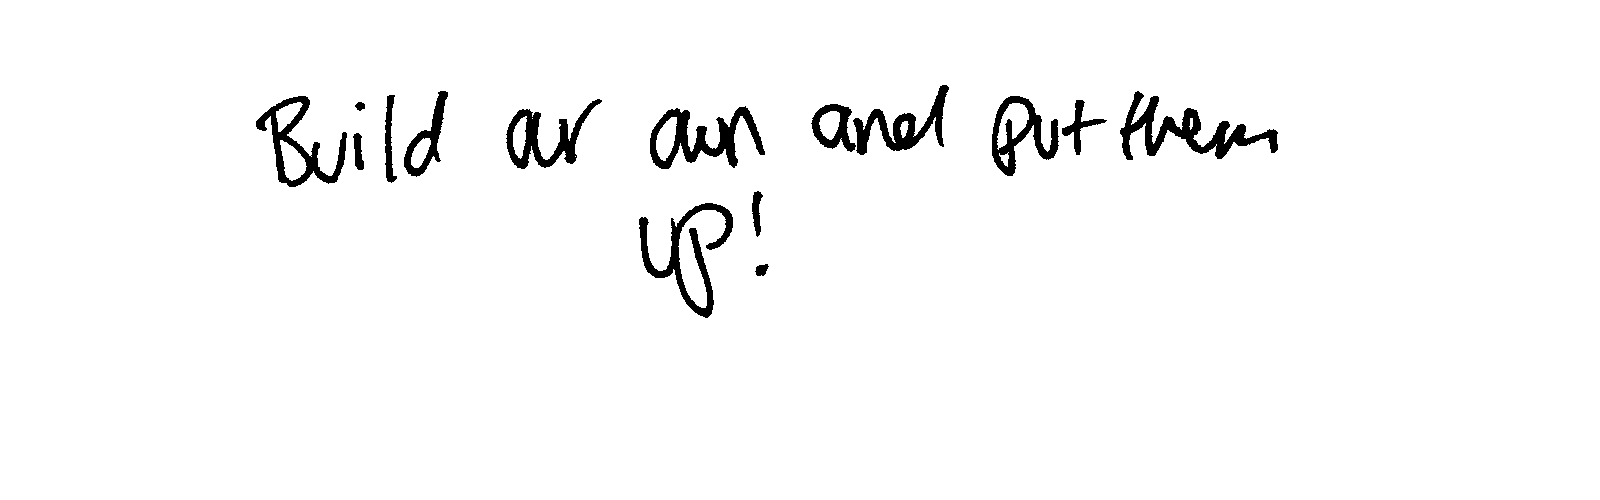 Build our own and put them
up!